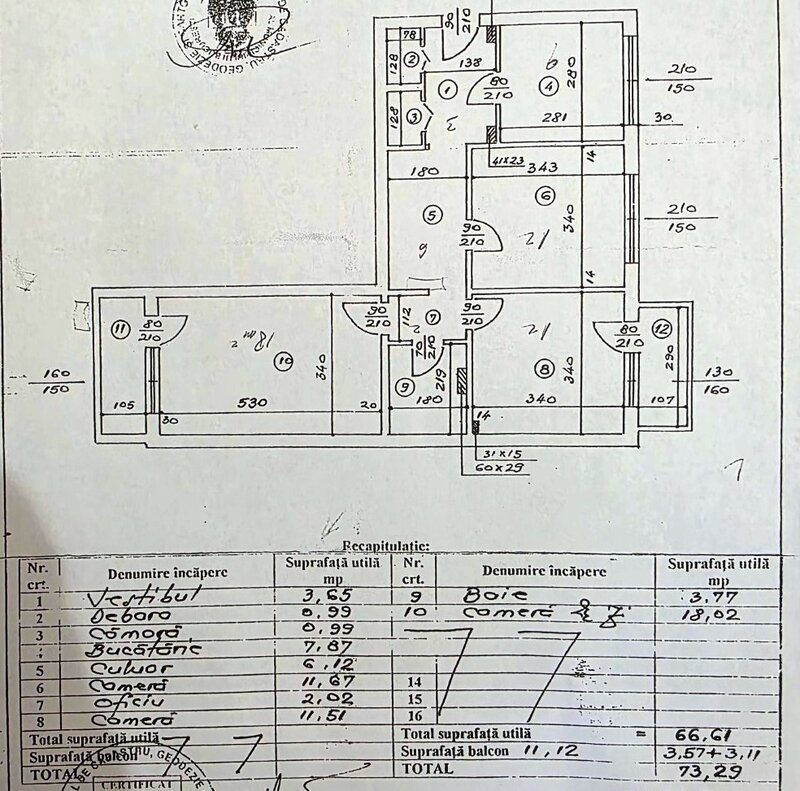 90
210
78
128
2
138
1
3
128
80
210
4
280
281
210
150
30
14
41×23
180
343
5
6
340
210
150
90
210
6
12
14
11
80
210
10
18 m²
340
530
105
30
20
90
210
112
7
2
70
210
90
210
9
219
180
8
12
340
340
14
80
210
12
290
107
160
150
130
160
31×15
60×29
Recapitulaţie:
Nr. crt. Denumire încăpere Suprafaţă utilă mp Nr. crt. Denumire încăpere Suprafaţă utilă mp
1 Vestibul 3,65 9 Baie 3,77
2 Debara 0,99 10 Cameră 18,02
3 Cămară 0,99
Bucătărie 7,87
5 Culuar 6,12
6 Cameră 11,67 14
7 Oficiu 2,02 15
8 Cameră 11,51 16
Total suprafaţă utilă Total suprafaţă utilă = 66,61
Suprafaţă balcon Suprafaţă balcon 11,12 3,57+3,11
TOTAL TOTAL 73,29
DE CADASTRU, GEODEZIE
CERTIFICAT